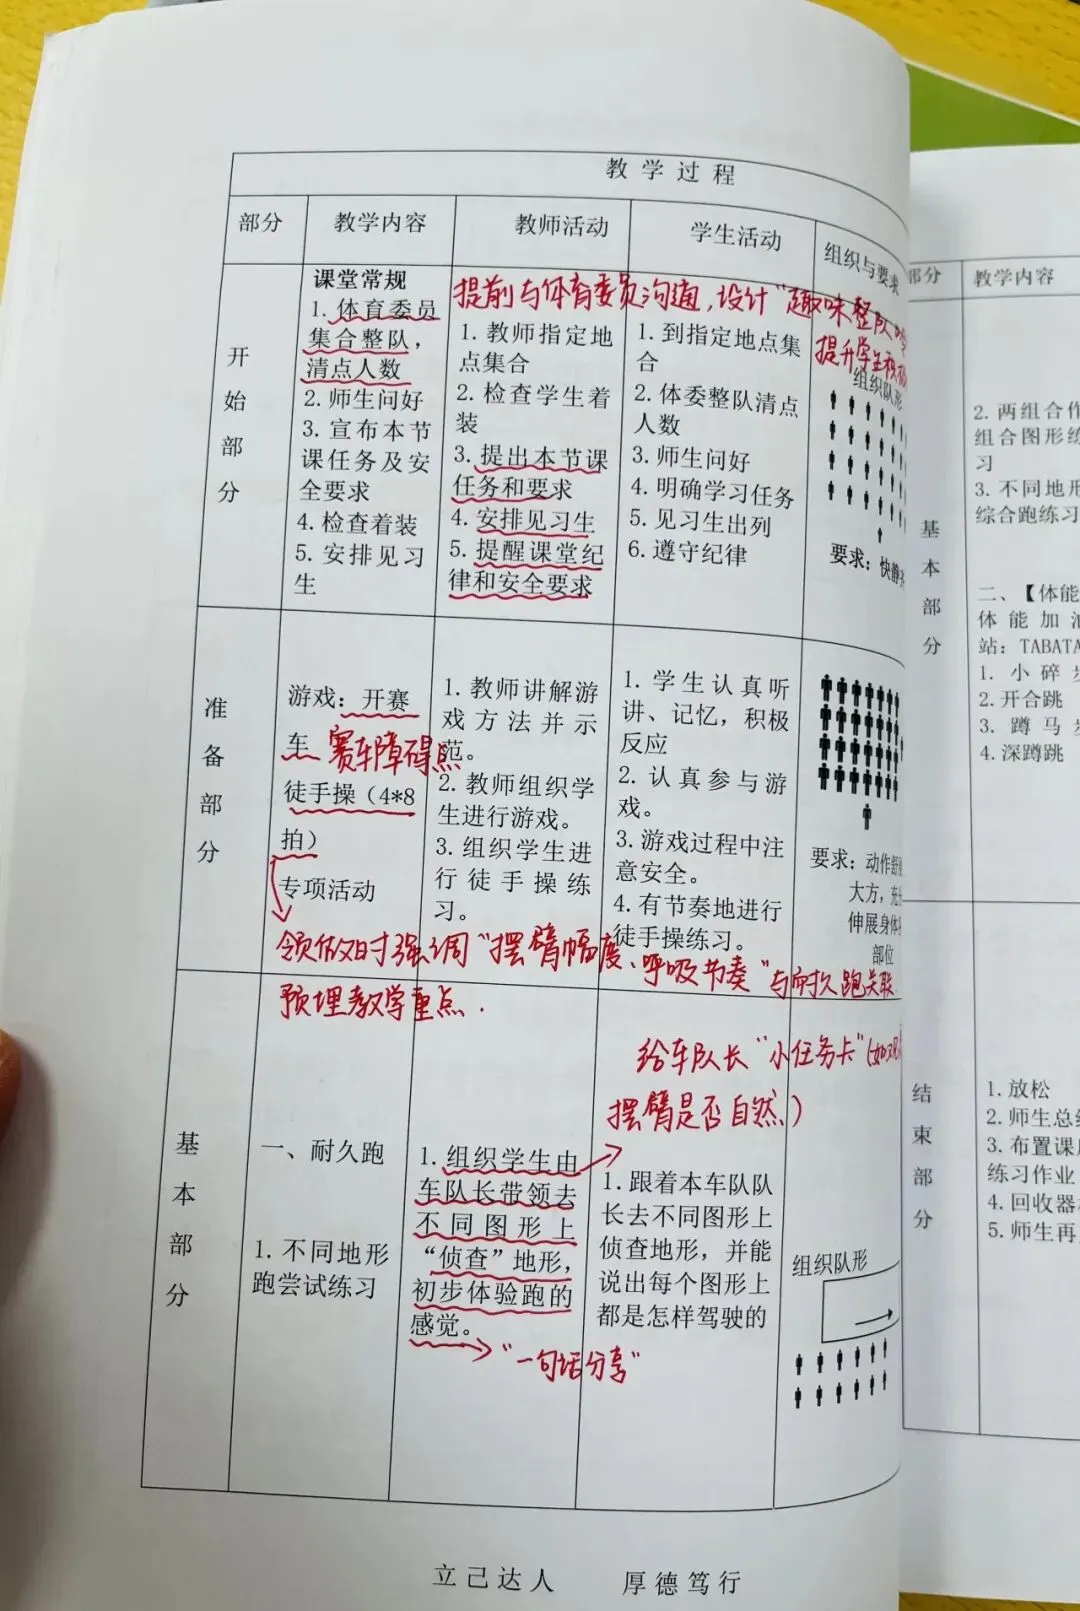 教学过程
部分 教学内容 教师活动 学生活动 组织与要求
开始部分
课堂常规
1. 体育委员
集合整队，
清点人数
2. 师生问好
3. 宣布本节
课任务及安
全要求
4. 检查着装
5. 安排见习
生
提前与体育委员沟通，设计“趣味整队
提升学生积
1. 教师指定地
点集合
2. 检查学生着
装
3. 提出本节课
任务和要求
4. 安排见习生
5. 提醒课堂纪
律和安全要求
1. 到指定地点集
合
2. 体委整队清点
人数
3. 师生问好
4. 明确学习任务
5. 见习生出列
6. 遵守纪律
组织队形
要求：快静
准备部分
游戏：开赛
车 赛车障碍点
徒手操（4*8
拍）
专项活动
1. 教师讲解游
戏方法并示
范。
2. 教师组织学
生进行游戏。
3. 组织学生进
行徒手操练
习。
1. 学生认真听
讲、记忆，积极
反应
2. 认真参与游
戏。
3. 游戏过程中注
意安全。
4. 有节奏地进行
徒手操练习。
要求：动作舒
大方，充
伸展身体
部位
领做时强调“摆臂幅度、呼吸节奏”与耐久跑关联
预埋教学重点.
基本部分
一、耐久跑
1. 不同地形
跑尝试练习
1. 组织学生由
车队长带领去
不同图形上
“侦查”地形，
初步体验跑的
感觉。
“一句话分享”
给车队长“小任务卡”（如观
摆臂是否自然）
1. 跟着本车队队
长去不同图形上
侦查地形，并能
说出每个图形上
都是怎样驾驶的
组织队形
立己达人 厚德笃行
部分 教学内容
基本部分
2. 两组合作
组合图形练
习
3. 不同地形
综合跑练习
二、【体能
体能加油
站：TABATA
1. 小碎步
2. 开合跳
3. 蹲马步
4. 深蹲跳
结束部分
1. 放松
2. 师生总结
3. 布置课
练习作业
4. 回收器
5. 师生再